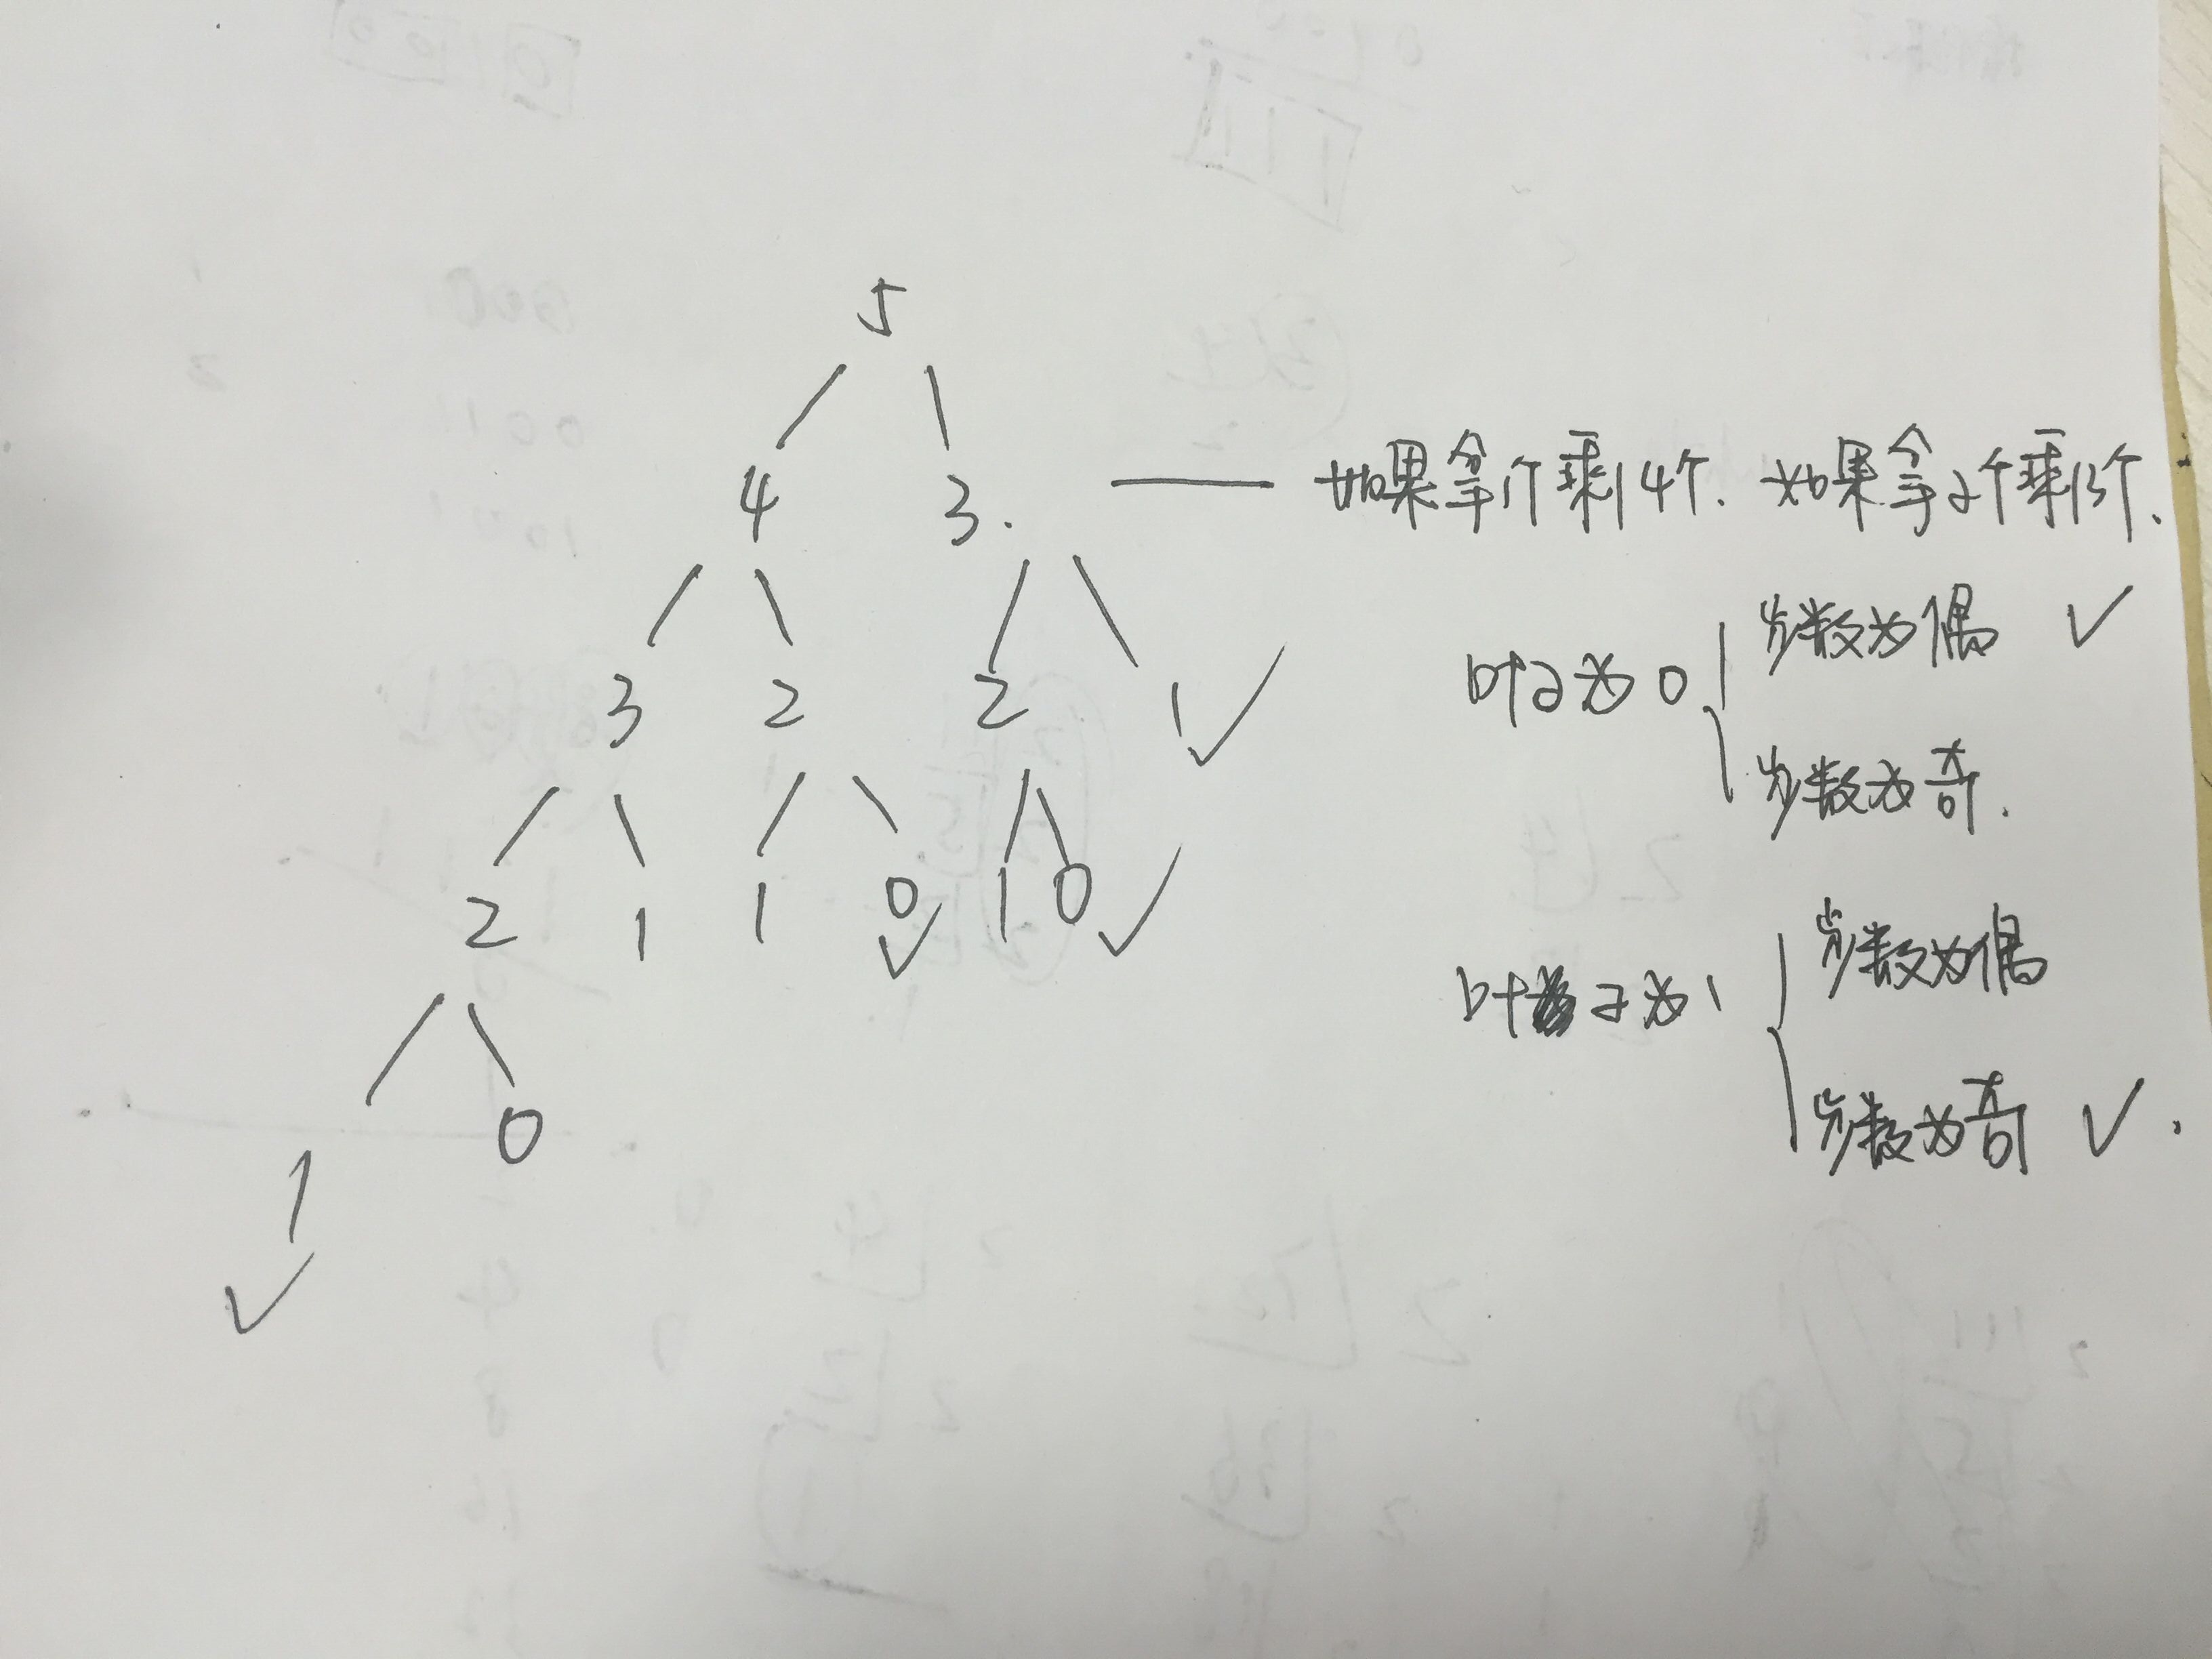 5
4 3. —— 如果拿1个剩4个. 如果拿2个剩3个.
3 2 2 1 ✓
叶子为 0 { 步数为偶 ✓
步数为奇.
2 1 1 0 ✓ 1 0 ✓
叶子为 1 { 步数为偶
步数为奇 ✓.
1 ✓ 0